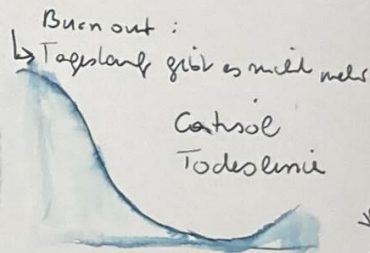 Burn out :
↳ Tageslauf gibt es nicht mehr
Cortisol
Todeslinie